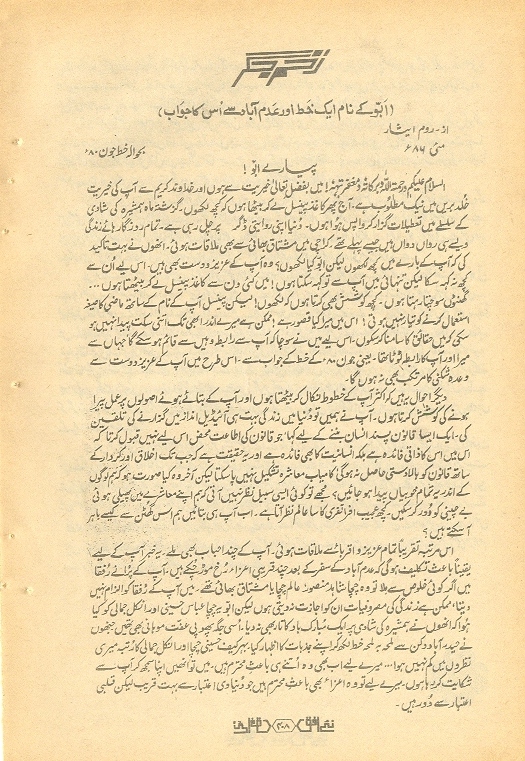 زخمِ جگر
(ابّو کے نام ایک خط اور عَدم آباد سے اُس کا جواب)
از۔ روم ایثار
مئی ۸۶ء
بحوالہ خط جون ۸۰ء
پیارے ابّو!
السلام علیکم ورحمتہ اللہ وبرکاتہ ومغفرتہ! میں بفضلِ تعالیٰ خیریت سے ہوں اور خداوند کریم سے آپ کی خیریت
خُلد بریں میں نیک مطلوب ہے۔ آج پھر کاغذ پینسل لے کر بیٹھا ہوں کہ کچھ لکھوں۔ گزشتہ ماہ ہمشیرہ کی شادی
کے سلسلے میں تعطیلات گزار کر واپس ہوا ہوں۔ دُنیا اپنی روایتی ڈگر پر چل رہی ہے۔ تمام روزگار ہائے زندگی
ویسے ہی رواں دواں ہیں جیسے پہلے تھے۔ کراچی میں مشتاق بھائی سے بھی ملاقات ہوئی۔ انھوں نے بہت تاکید
کی کہ آپ کے بارے میں کچھ لکھوں لیکن ابّو کیا لکھوں؟ وہ آپ کے عزیز دوست بھی ہیں۔ اس لیے اُن سے
کچھ نہ کہہ سکا لیکن تنہائی میں آپ سے تو کہہ سکتا ہوں! میں کئی دن سے کاغذ پینسل لے کر بیٹھتا ہوں...
گھنٹوں سوچتا رہتا ہوں۔ کچھ کوشش بھی کرتا ہوں کہ لکھوں! لیکن پینسل آپ کے نام کے ساتھ ماضی کا صیغہ
استعمال کرنے کو تیار نہیں ہوتی! اس میں میرا کیا قصور ہے؟ ممکن ہے میرے اندر ابھی تک اتنی سکت پیدا نہیں ہو
سکی کہ میں حقائق کا سامنا کر سکوں۔ اس لیے میں نے سوچا کہ آپ سے رابطہ وہیں سے قائم ہوگا جہاں سے
میرا اور آپ کا رابطہ ٹوٹا تھا۔ یعنی جون ۸۰ء کے خط کے جواب سے۔ اس طرح میں آپ کے عزیز دوست سے
وعدہ شکنی کا مرتکب بھی نہ ہوں گا۔
دیگر احوال یہ ہیں کہ اکثر آپ کے خطوط نکال کر بیٹھتا ہوں اور آپ کے بتائے ہوئے اصولوں پر عمل پیرا
ہونے کی کوشش کرتا ہوں۔ آپ نے ہمیں تو دُنیا میں زندگی بہت ہی آئیڈیل انداز میں گزارنے کی تلقین
کی۔ ایک ایسا قانون پسند انسان بننے کے لیے کہا جو قانون کی اطاعت محض اس لیے نہیں قبول کرتا کہ
اس میں اس کا ذاتی فائدہ ہے بلکہ انسانیت کا بھی فائدہ ہے اور یہ حقیقت ہے کہ جب تک اخلاق اور کردار کے
ساتھ قانون کو بالادستی حاصل نہ ہوگی کامیاب معاشرہ تشکیل نہیں پا سکتا لیکن آخر وہ کیا صورت ہو کہ ہم لوگوں
کے اندر یہ تمام خوبیاں پیدا ہو جائیں؟ مجھے تو کوئی ایسی سبیل نظر نہیں آتی کہ ہم اپنے معاشرے میں پھیلی ہوئی
بے چینی کو دُور کر سکیں۔ کچھ عجیب افراتفری کا سا عالم نظر آتا ہے۔ اب آپ ہی بتائیں ہم اس گھٹن سے کیسے باہر
آ سکتے ہیں؟
اس مرتبہ تقریباً تمام عزیز و اقربا سے ملاقات ہوئی۔ آپ کے چند احباب بھی ملے۔ یہ خبر آپ کے لیے
یقیناً باعثِ تکلیف ہوگی کہ عدم آباد کے سفر کے بعد چند قریبی اعزاء رُخ موڑ چکے ہیں۔ آپ کے پُرانے رُفقا
میں اگر کوئی خلوص سے ملا تو وہ چچا شاہد منصور، عالم چچا یا مشتاق بھائی تھے۔ میں آپ کے رُفقا کو الزام نہیں
دیتا، ممکن ہے زندگی کی مصروفیات ان کو اجازت نہ دیتی ہوں لیکن ابّو یہ چچا عباس حسینی اور انکل جمالی کو کیا
ہوا کہ انھوں نے ہمشیرہ کی شادی پر ایک مُبارک باد کا تار بھی نہ دیا۔ اُسی جگہ پھوپھی عفّت موہانی بھی تھیں جنھوں
نے حیدر آباد دکن سے لمحہ بہ لمحہ خط لکھ کر اپنے جذبات کا اظہار کیا۔ بہر کیف حسینی چچا اور انکل جمالی کا رُتبہ میری
نظروں میں کم نہیں ہوا... میرے لیے اب بھی وہ اُتنے ہی باعثِ محترم ہیں۔ میں تو انھیں اپنا سمجھ کر آپ سے
شکایت کر رہا ہوں۔ میرے لیے تو وہ اعزاء بھی باعثِ محترم ہیں جو دُنیاوی اعتبار سے بہت قریب لیکن قلبی
اعتبار سے دُور ہیں۔
نئے افق ۴۰۸